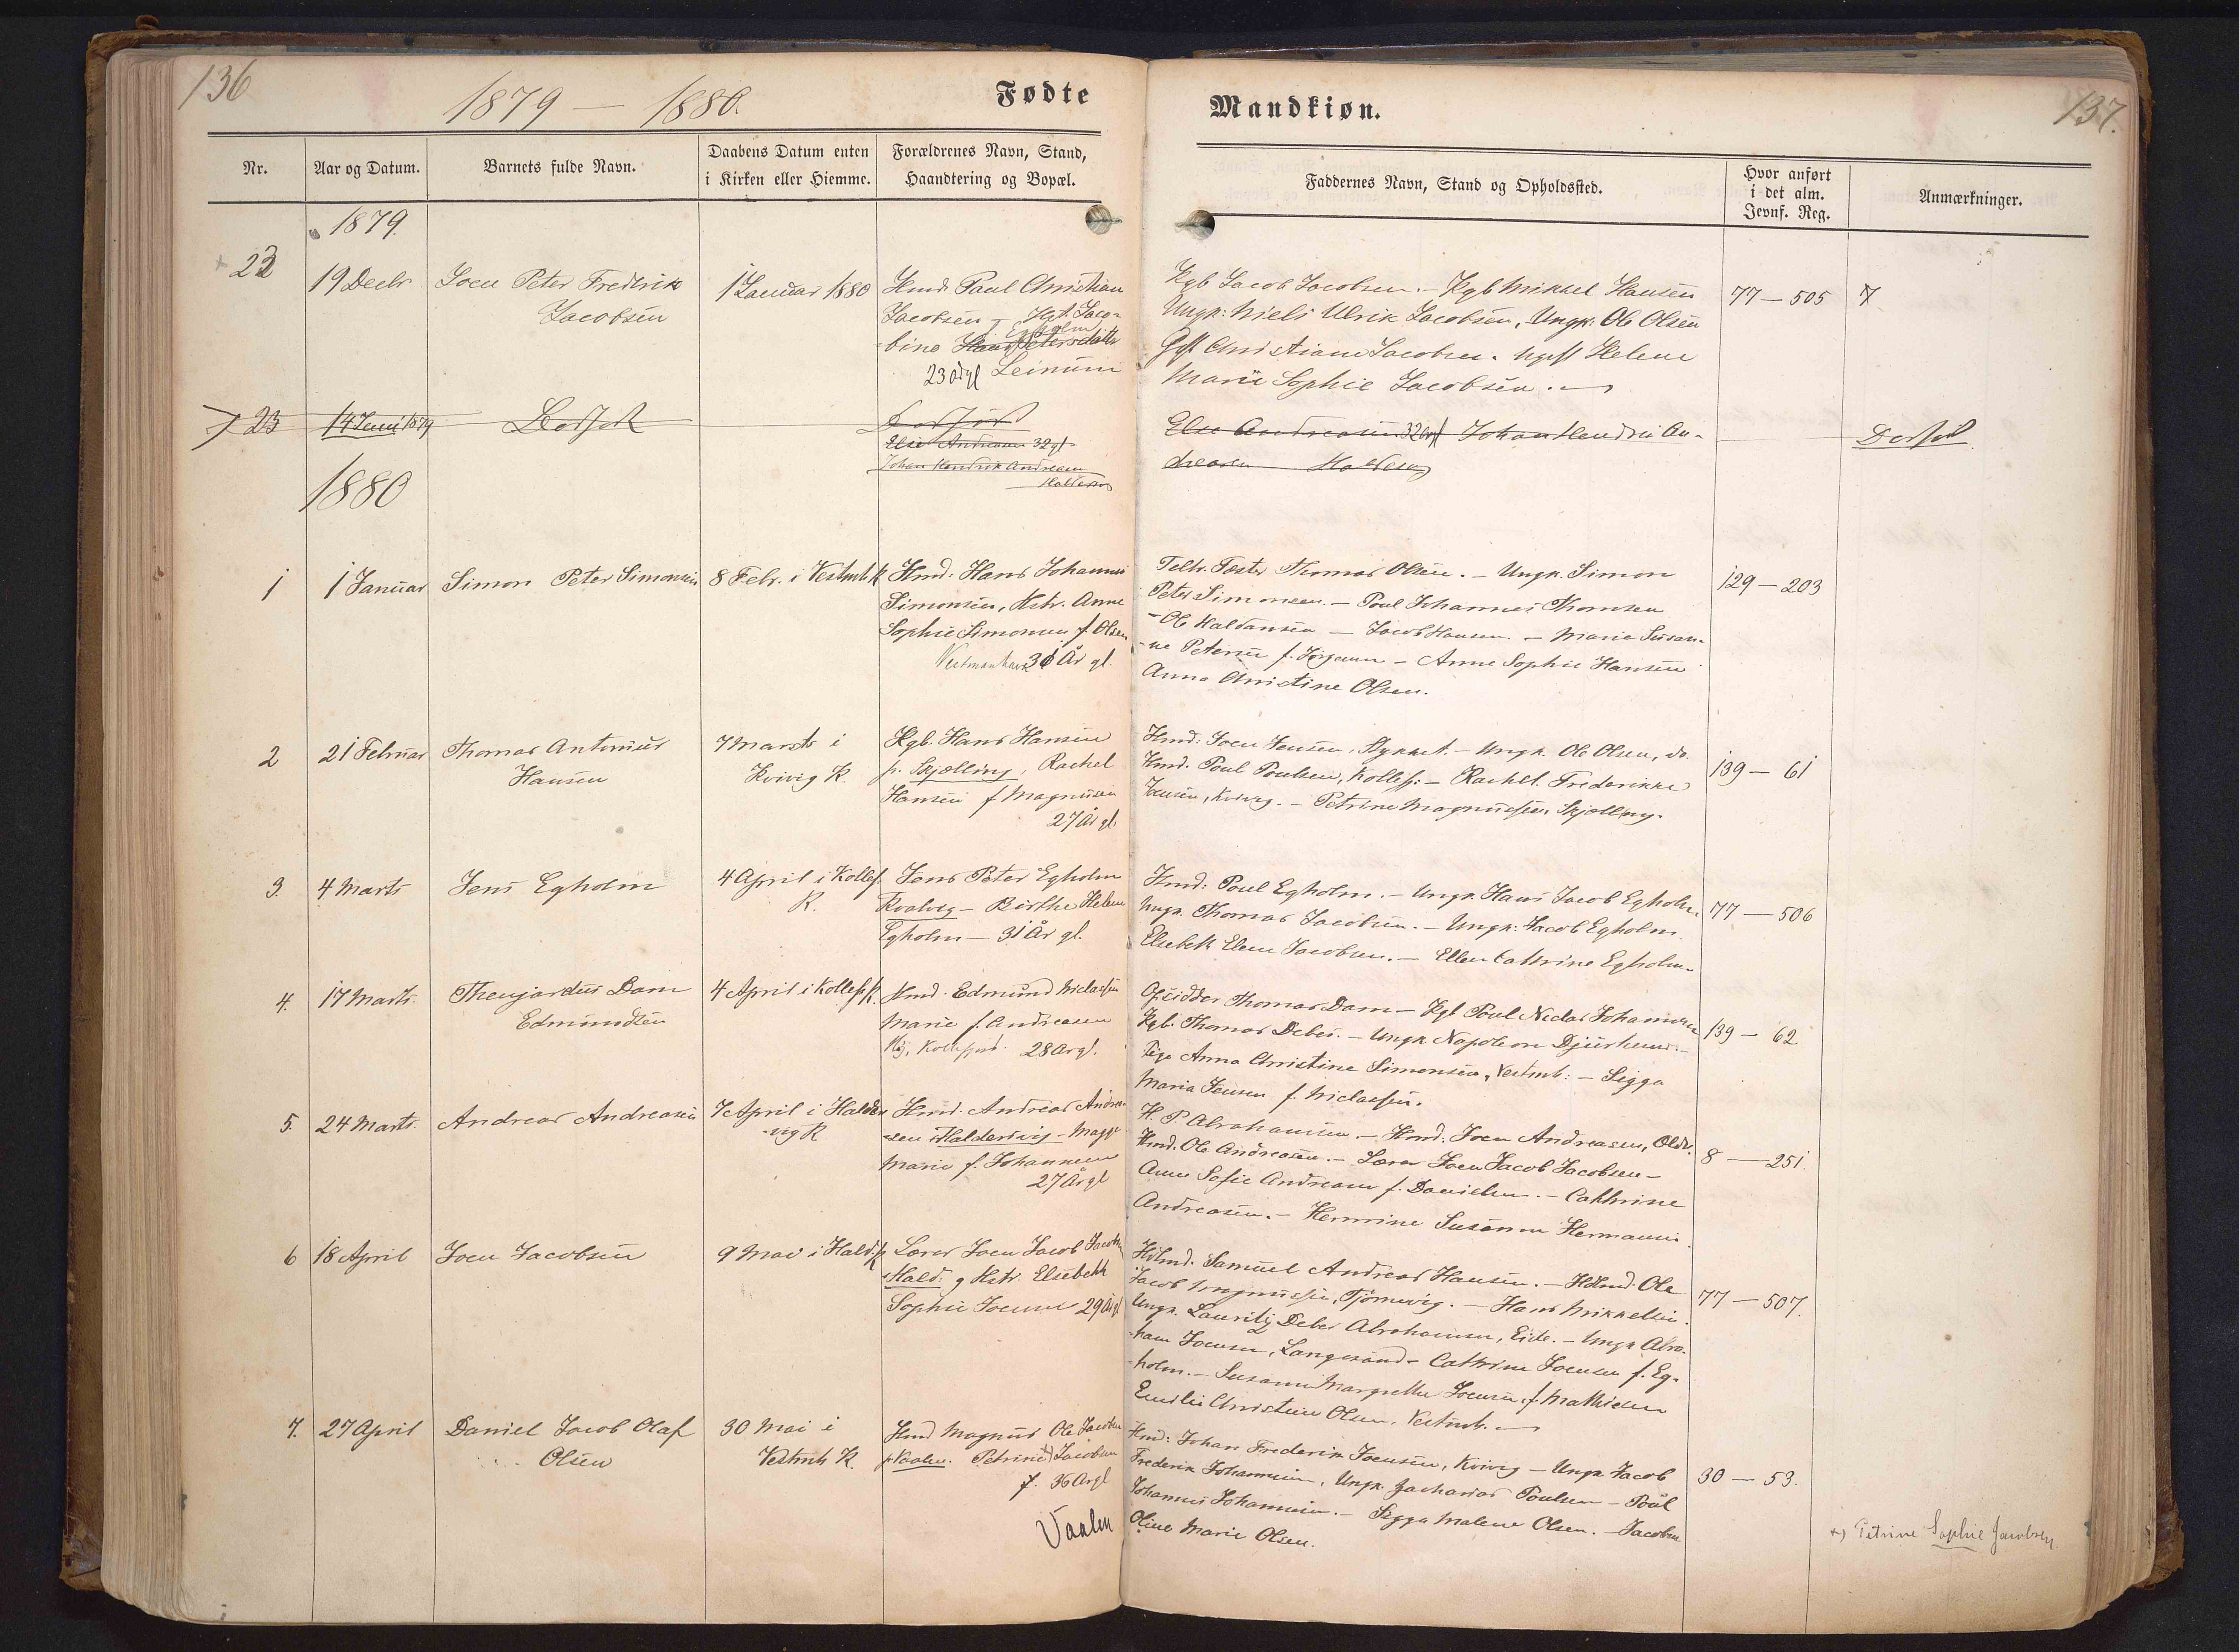 136
1879 — 1880.
Fødte
Nr.
Aar og Datum.
Barnets fulde Navn.
Daabens Datum enten
i Kirken eller Hiemme.
Forældrenes Navn, Stand,
Haandtering og Bopæl.
1879.
22
19 Decbr
Joen Peter Fredrik
Jacobsen
1 Januar 1880
Hmd. Paul Christian
Jacobsen - Hst. Jaco-
bine
f. Egholm
23 årgl Leinum
23
14 Juni 1879
Dødfødt
Dødfødt
Else Andreasen 32 gl
Johan Hendrik Andreasen
Haldersvig
1880
1
1 Januar
Simon Peter Simonsen
8 Febr. i Vestmh K
Hmd. Hans Johannes
Simonsen, Hstr. Anne
Sophie Simonsen f. Olsen
Vestmanhavn 31 År gl.
2
21 Februar
Thomas Antonius
Hansen
7 Marts i
Kvivig K.
Kgb. Hans Hansen
p. Skjælling, Rachel
Hansen f Magnusen
27 År gl.
3.
4 Marts
Jens Egholm
4 April i Kollef.
K.
Jens Peter Egholm
Kvalvig - Birthe Helene
Egholm - 31 År gl.
4.
17 Marts.
Thenjardus Dam
Edmundsen
4 April i Kollefj K.
Hmd. Edmund Niclassen
Marie f. Andreasen
Kollefjord. 28 År gl.
5.
24 Marts.
Andreas Andreasen
7 April i Halders
vig K
Hmd. Andreas Andrea-
sen Haldersvig - Magge
Marie f. Johannesen
27 År gl
6
18 April
Joen Jacobsen
9 Mai i Hald. K
Lærer Joen Jacob Jacobsen
Hald. og Hstr Elsebeth
Sophie Joensen 29 År gl
7.
27 April
Daniel Jacob Olaf
Olsen
30 Mai i
Vestmh K.
Hmd Magnus Ole Jacobsen
p Vaalen. Petrine x) Jacobsen
f. 36 År gl
Vaalen
Mandkiøn.
137.
Faddernes Navn, Stand og Opholdssted.
Hvor anført
i det alm.
Jevnf. Reg.
Anmærkninger.
Kgb Jacob Jacobsen. - Kgb Mikkel Hansen
Ungk: Niels Ulrik Jacobsen, Ungk: Ole Olsen
Gift Christiane Jacobsen. Ugift Helene
Marie Sophie Jacobsen.
77 - 505
7
Else Andreasen 32 årgl Johan Hendrik An-
dreasen Haldersvig
Dødfød.
Telbr. Fæster Thomas Olsen. - Ungk. Simon
Peter Simonsen. - Poul Johannes Thomsen
- Ole Haldansen - Jacob Hansen. - Marie Susan-
ne Petersen f. Jørgensen - Anne Sophie Hansen
Anna Christine Olsen.
129 - 203
Hmd: Joen Jensen, Stykket. - Ungk. Ole Olsen, do.
Hmd. Poul Poulsen, Kollefj: - Rachel Frederikke
Joensen, Kvivig. - Petrine Magnussen Skjælling.
139 - 61
Hmd: Poul Egholm. - Ungk. Hans Jacob Egholm.
Ungk. Thomas Jacobsen. - Ungk: Jacob Egholm.
Elsebeth Elene Jacobsen. - Ellen Cathrine Egholm.
77 - 506
Opsidder Thomas Dam - Kgb Poul Niclas Johannesen
Kgb. Thomas Debes. - Ungk Napoleon Djurhuus. -
Pige Anna Christine Simonsen, Vestmh: - Sigga
Maria Jensen f. Niclassen.
139 - 62
H. P. Abrahamsen. - Hmd: Joen Andreasen, Oldr.
Hmd. Ole Andreasen. - Lærer Joen Jacob Jacobsen -
Anne Sofie Andreasen f. Danielsen. - Cathrine
Andreasen. - Hermine Susanne Hermansen.
8 - 251.
Hdlmd. Samuel Andreas Hansen. - Hdlmd. Ole
Jacob Magnussen, Tjørnevig. - Hans Mikkelsen.
Ungk. Lauritz Debes Abrahamsen, Eide. - Ungk Abra-
ham Joensen, Langesand - Cathrine Joensen f. Eg-
holm. - Susanne Margrethe Joensen f. Mathiesen
Emilie Christine Olsen, Vestmh. -
77 - 507.
Hmd: Johan Frederik Joensen, Kvivig - Ungk Jacob
Frederik Johannesen, Ungk. Zacharias Poulsen - Poul
Johannes Johannesen. - Sigga Malene Olsen. - Jacobine
Oline Marie Olsen.
30 - 53.
x) Petrine Sophie Jacobsen